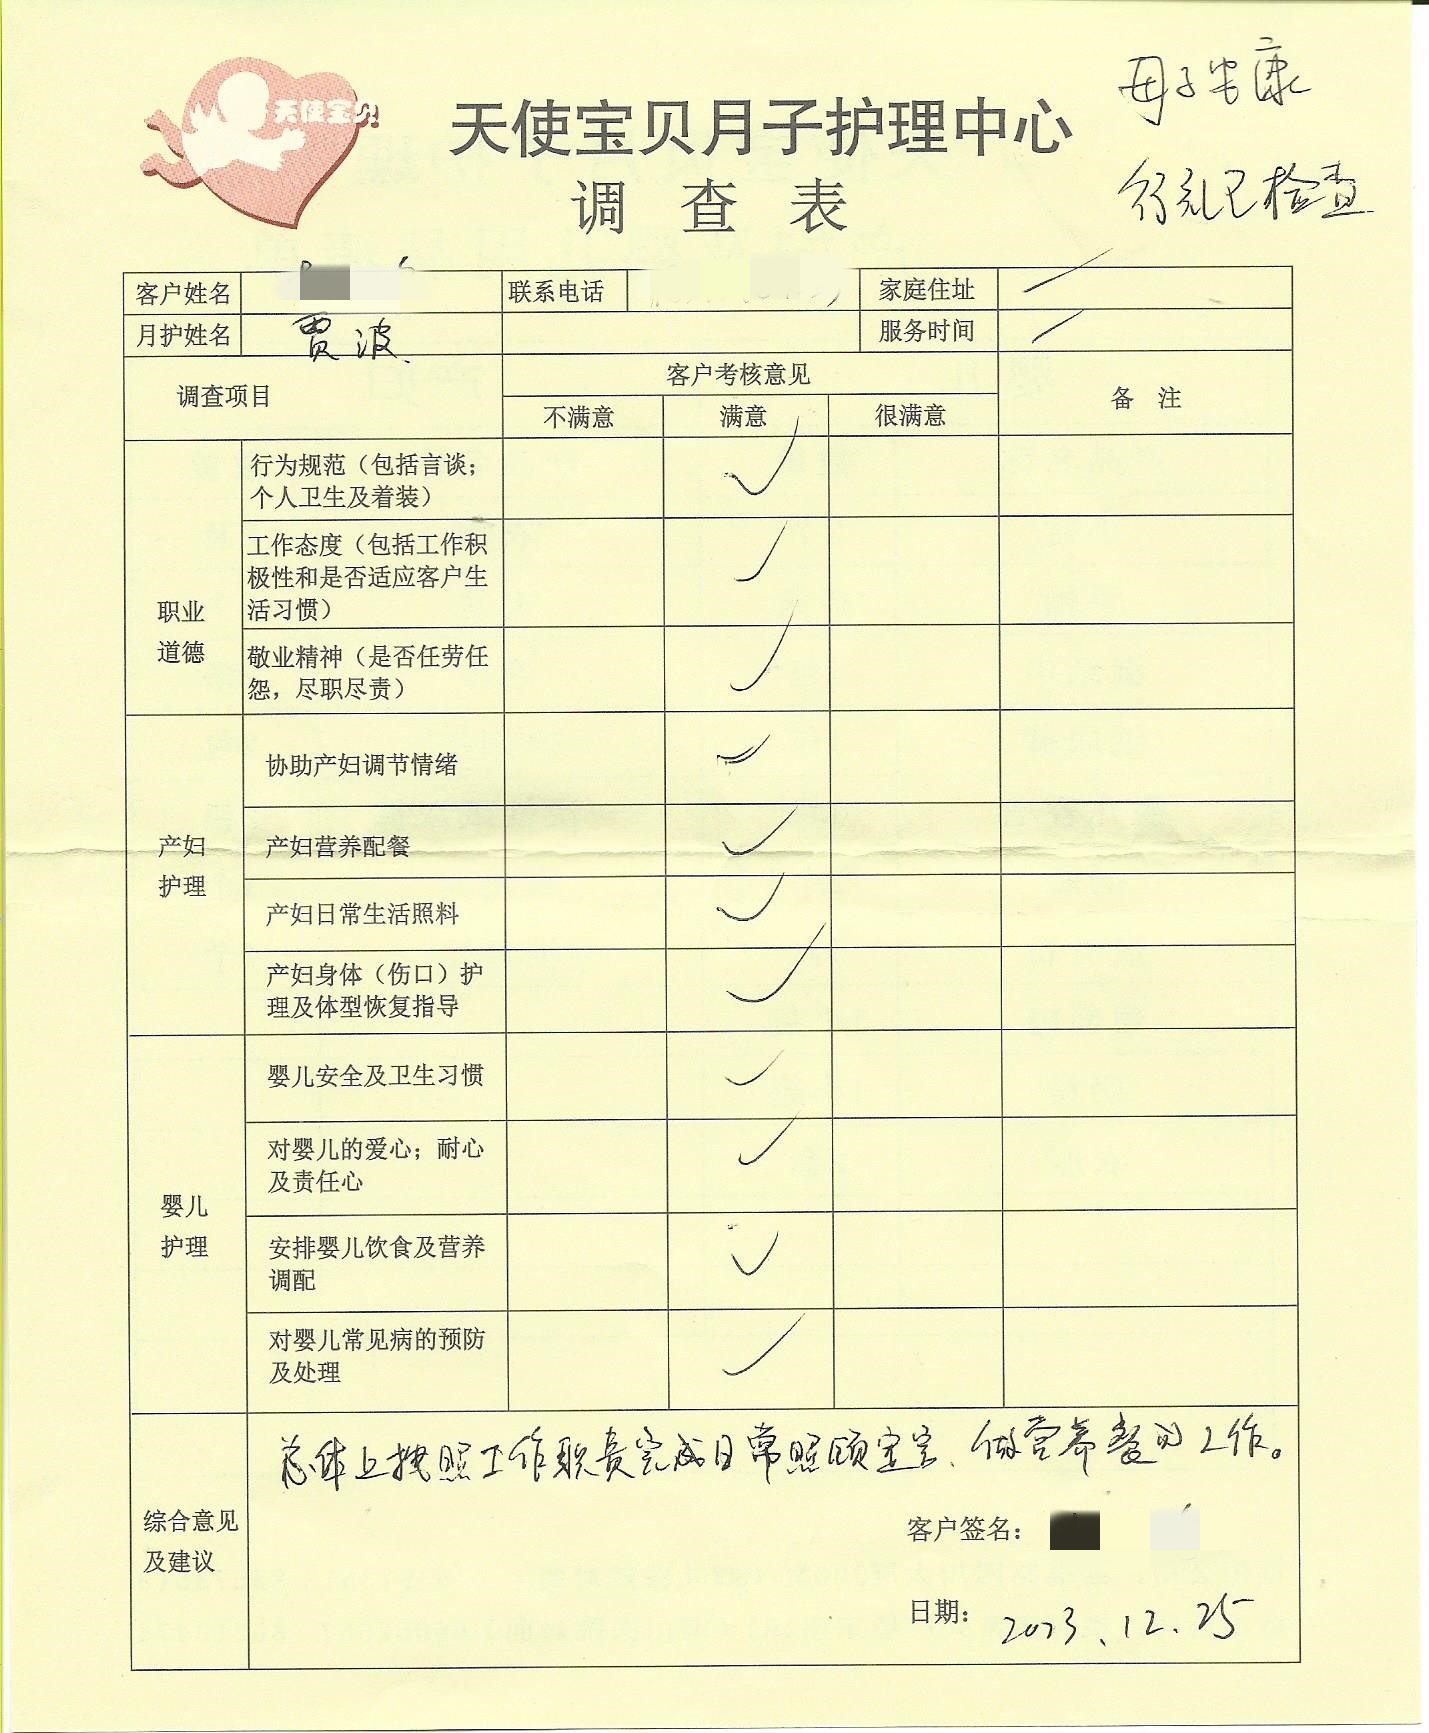 天使宝贝
母子安康
天使宝贝月子护理中心
行礼已检查
调 查 表
客户姓名 联系电话 家庭住址
月护姓名 贾波 服务时间
调查项目 客户考核意见 备 注
不满意 满意 很满意
职业
道德
行为规范（包括言谈；
个人卫生及着装）
工作态度（包括工作积
极性和是否适应客户生
活习惯）
敬业精神（是否任劳任
怨，尽职尽责）
产妇
护理
协助产妇调节情绪
产妇营养配餐
产妇日常生活照料
产妇身体（伤口）护
理及体型恢复指导
婴儿
护理
婴儿安全及卫生习惯
对婴儿的爱心；耐心
及责任心
安排婴儿饮食及营养
调配
对婴儿常见病的预防
及处理
综合意见
及建议
总体上按照工作职责完成日常照顾宝宝、做营养餐的工作。
客户签名：
日期： 2023.12.25